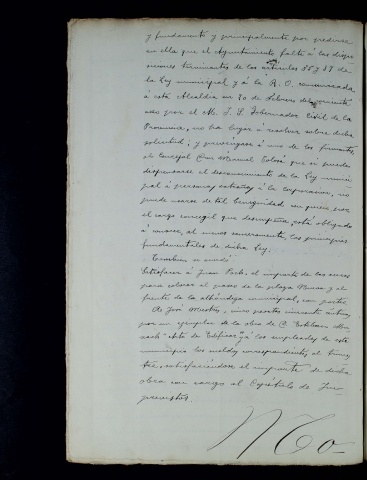 y fundamento y principalmente por pedirse
en ella que el Ayuntamiento falte á las dispo
siciones terminantes de los artículos 36 y 37 de
la Ley municipal y á la R. O. comunicada
á esta Alcaldia en 20 de Febrero del corriente
año por el M. I. S. Gobernador Civil de la
Provincia, no ha lugar á resolver sobre dicha
solicitud; y prevéngase á uno de los firmantes
el Concejal Don Manuel que si puede
dispensarse el desconocimiento de la Ley munici
pal á personas extrañas á la Corporacion, no
puede usarse de tal benignidad en quien por
el cargo concegil que desempeña, está obligado
á conocer, al menos someramente, los principios
fundamentales de dicha Ley.
Tambien se acordó
Satisfacer á Juan el importe de las
para colocar el paseo de la playa y el
frente de la alhóndiga municipal, con
A José cinco pesetas cincuenta céntimos
por un ejemplar de la obra de D. Esteban
"Arte de Edificar" y á los empleados de este
municipio los sueldos correspondientes al trimes
tre, satisfaciéndose el importe de dicha
obra con cargo al Capítulo de Im
previstos.